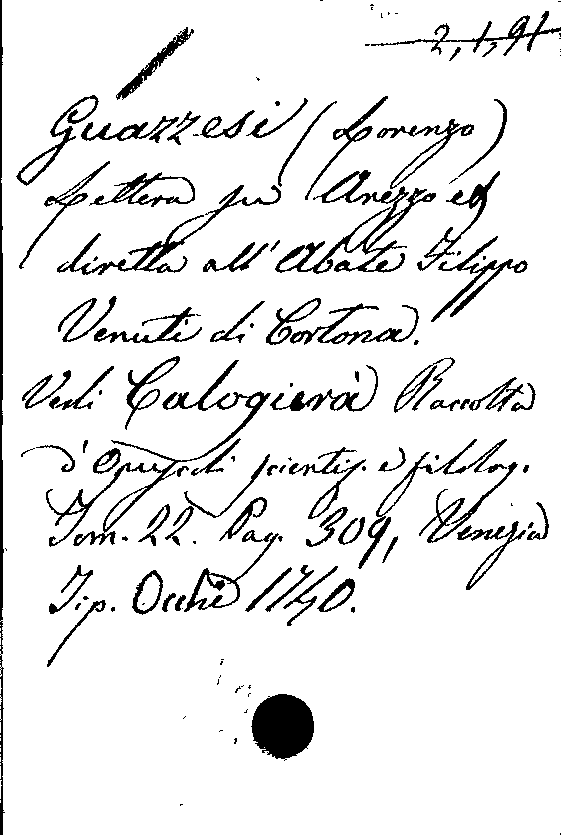 2, 1, 91
Guazzesi (Lorenzo)
Lettera su Arezzo ed
diretta all' Abate Filippo
Venuti di Cortona.
Vedi Calogierà Raccolta
d' Opuscoli scientif. e filolog.
Tom. 22. Pag. 309, Venezia
Tip. Occhi 1740.